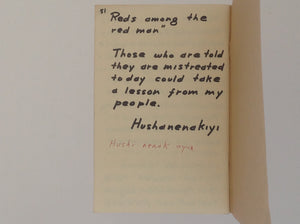 51
Reds among the
red man"
Those who are told
they are mistreated
today could take
a lesson from my
people.
Hushanenakiyi
Hushi nenak ayu